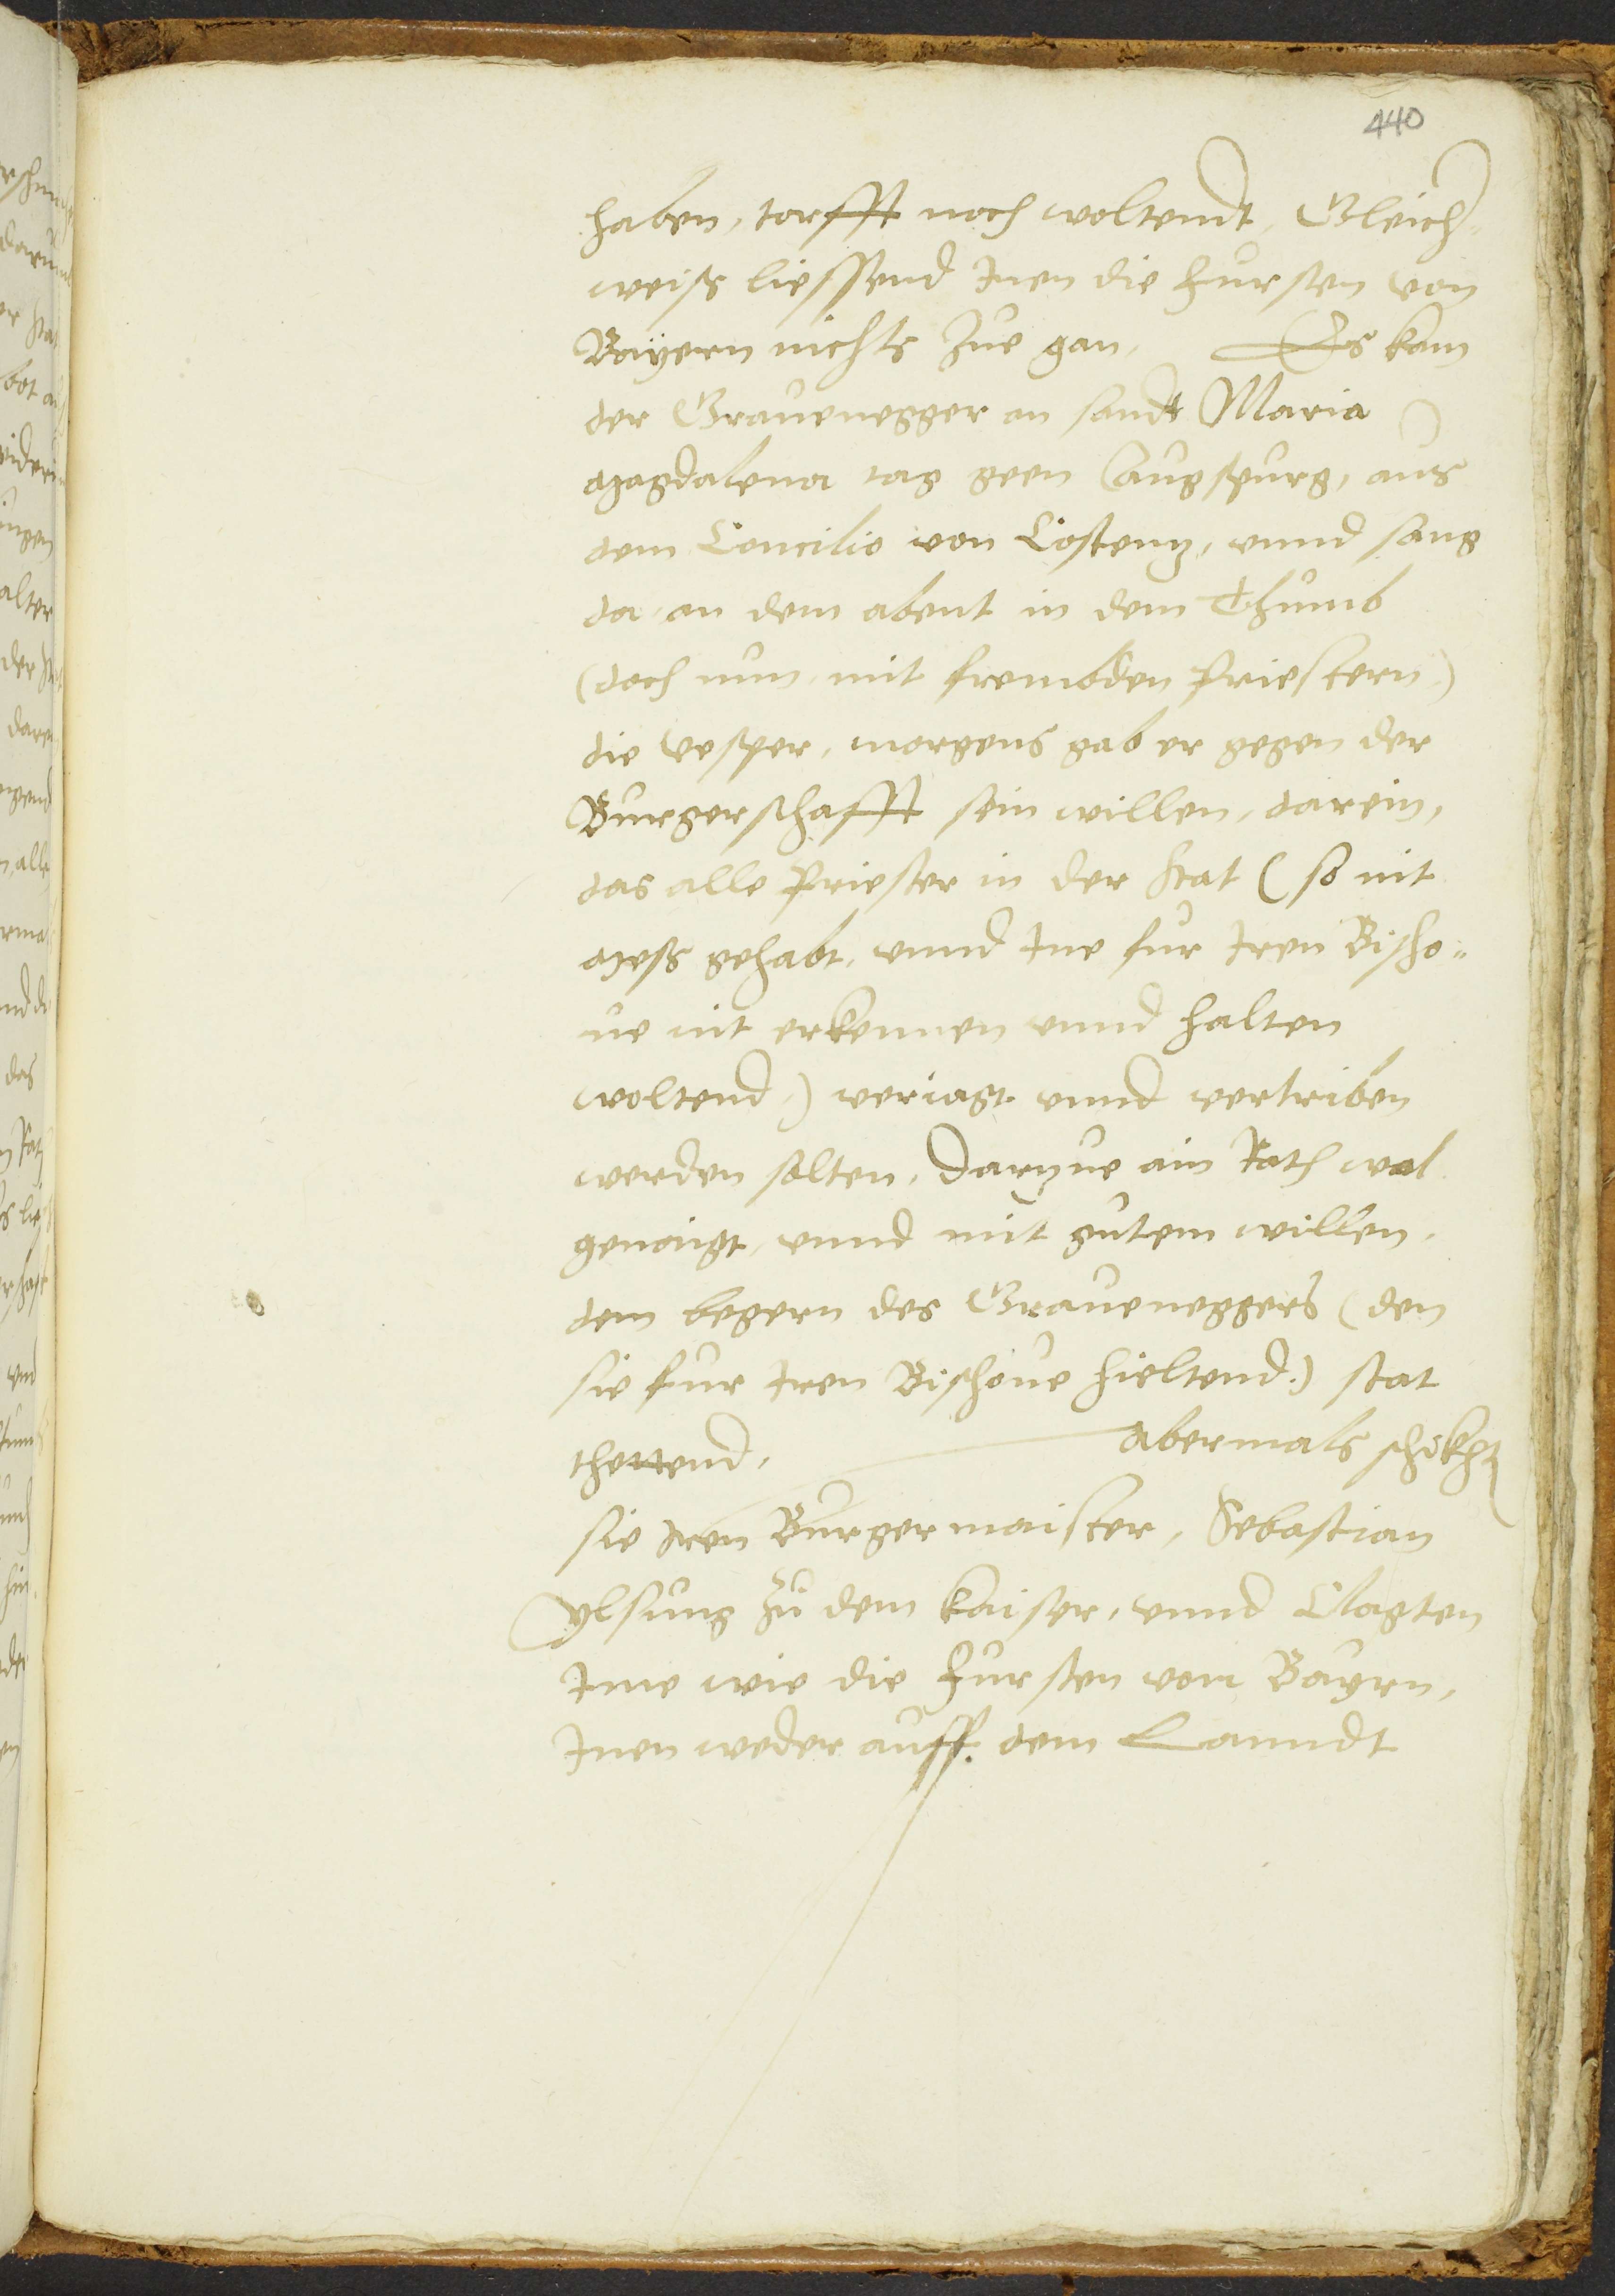 440
haben, torfft noch woltendt, Gleich¬
weiss liessend Inen die Fursten von
Bayern nichts Zue gan, Es kam
der Grauenegger an sandt Maria
Magdalena tag geen Augspurg, aus
dem Concilio von Costentz, vnnd sang
da an dem abent in dem Thumb
(doch nun mit frembden Priestern)
die Vesper, morgens gab er gegen der
Burgerschafft sein willen, darein,
das alle Priester in der Stat (so nit
Mess gehabt, vnnd Ine fur Iren Bischo¬
ue nit erkennen vnnd halten
woltend,) veriagt vnnd vertriben
werden solten, Darzue ain Rath wol
genaigt, vnnd mit gutem willen,
dem begern des Graueneggers (den
sie fur Iren Bischoue hieltend) stat
thettend, Abermals schikht
sie Iren Burgermaister, Sebastian
Ylsung zu dem kaiser, vnnd Clagten
Ime wie die Fursten von Bayrn,
Inen weder auff dem Lanndt